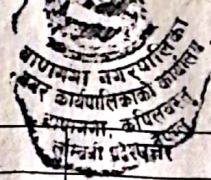 बाणगंगा नगरपालिका
नगर कार्यपालिकाको कार्यालय
कपिलवस्तु
लुम्बिनी प्रदेश